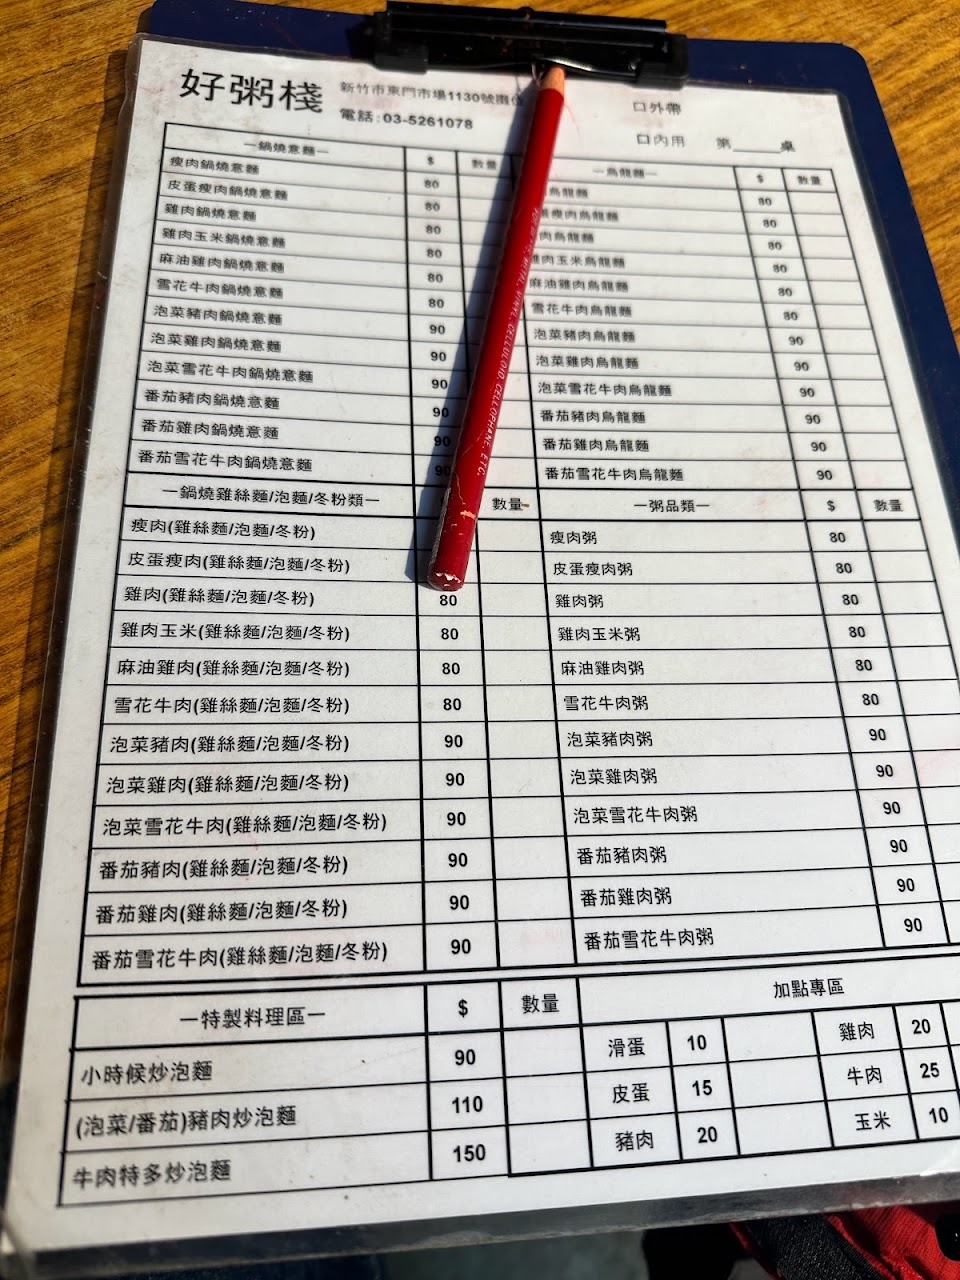 好粥棧 新竹市東門市場1130號攤位 口外帶
電話:03-5261078 口內用 第____桌
—鍋燒意麵— $ 數量
瘦肉鍋燒意麵 80
皮蛋瘦肉鍋燒意麵 80
雞肉鍋燒意麵 80
雞肉玉米鍋燒意麵 80
麻油雞肉鍋燒意麵 80
雪花牛肉鍋燒意麵 80
泡菜豬肉鍋燒意麵 90
泡菜雞肉鍋燒意麵 90
泡菜雪花牛肉鍋燒意麵 90
番茄豬肉鍋燒意麵 90
番茄雞肉鍋燒意麵 90
番茄雪花牛肉鍋燒意麵 90
—烏龍麵— $ 數量
烏龍麵 80
瘦肉烏龍麵 80
肉烏龍麵 80
肉玉米烏龍麵 80
麻油雞肉烏龍麵 80
雪花牛肉烏龍麵 80
泡菜豬肉烏龍麵 90
泡菜雞肉烏龍麵 90
泡菜雪花牛肉烏龍麵 90
番茄豬肉烏龍麵 90
番茄雞肉烏龍麵 90
番茄雪花牛肉烏龍麵 90
—鍋燒雞絲麵/泡麵/冬粉類— 數量
瘦肉(雞絲麵/泡麵/冬粉)
皮蛋瘦肉(雞絲麵/泡麵/冬粉)
雞肉(雞絲麵/泡麵/冬粉) 80
雞肉玉米(雞絲麵/泡麵/冬粉) 80
麻油雞肉(雞絲麵/泡麵/冬粉) 80
雪花牛肉(雞絲麵/泡麵/冬粉) 80
泡菜豬肉(雞絲麵/泡麵/冬粉) 90
泡菜雞肉(雞絲麵/泡麵/冬粉) 90
泡菜雪花牛肉(雞絲麵/泡麵/冬粉) 90
番茄豬肉(雞絲麵/泡麵/冬粉) 90
番茄雞肉(雞絲麵/泡麵/冬粉) 90
番茄雪花牛肉(雞絲麵/泡麵/冬粉) 90
—粥品類— $ 數量
瘦肉粥 80
皮蛋瘦肉粥 80
雞肉粥 80
雞肉玉米粥 80
麻油雞肉粥 80
雪花牛肉粥 80
泡菜豬肉粥 90
泡菜雞肉粥 90
泡菜雪花牛肉粥 90
番茄豬肉粥 90
番茄雞肉粥 90
番茄雪花牛肉粥 90
—特製料理區— $ 數量
小時候炒泡麵 90
(泡菜/番茄)豬肉炒泡麵 110
牛肉特多炒泡麵 150
加點專區
滑蛋 10 雞肉 20
皮蛋 15 牛肉 25
豬肉 20 玉米 10
METAL, VINYL, CELLULOID, CELLOPHANE, ETC.